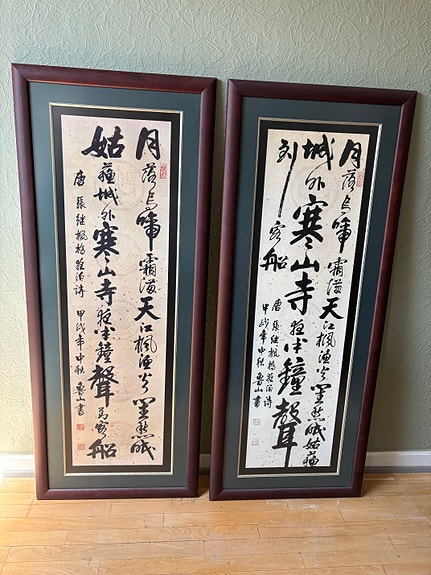 月落烏啼霜滿天江楓漁火對愁眠
姑蘇城外寒山寺夜半鐘聲到客船
唐張繼楓橋夜泊詩 甲戌年中秋 魯山書
月落烏啼霜滿天江楓漁火對愁眠姑蘇
城外寒山寺夜半鐘聲
到客船
唐張繼楓橋夜泊詩
甲戌年中秋 魯山書